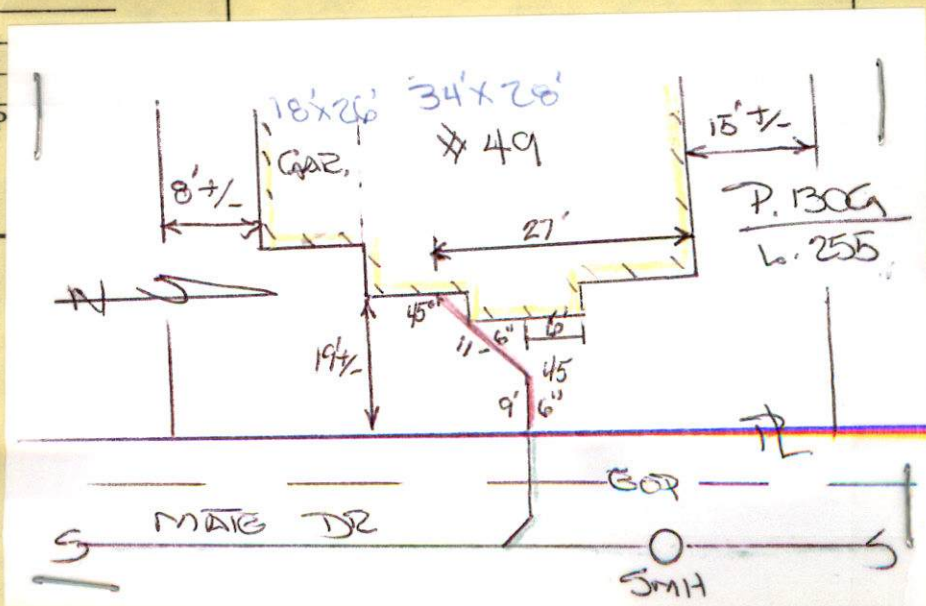 18'x26' 34'x28'
# 49
GAR.
15' +/-
8' +/-
27'
P. 130G
L. 255
N
45°
11'- 6"
6'
19' +/-
45
9' 6"
PL
EOP
MATE DR
S
S
SMH